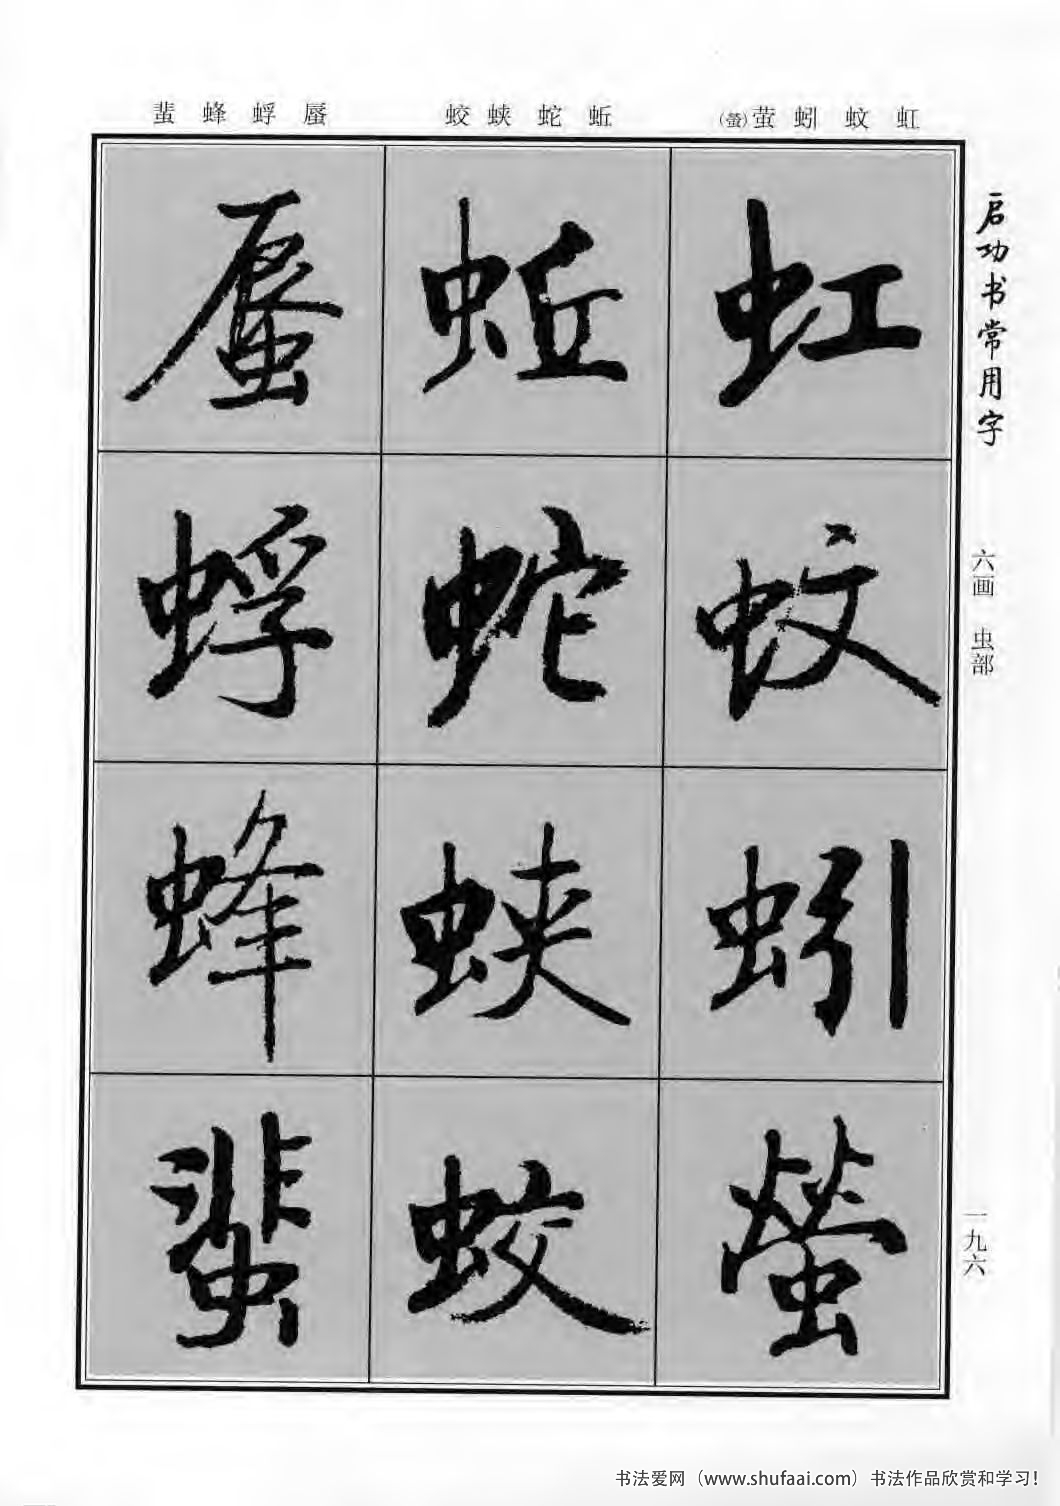 (螢)萤 蚓 蚊 虹
蛟 蛱 蛇 蚯
蜚 蜂 蜉 蜃
启功书常用字
六画 虫部
一九六
虹
蚊
蚓
螢
蚯
蛇
蛱
蛟
蜃
蜉
蜂
蜚
书法爱网（www.shufaai.com）书法作品欣赏和学习！